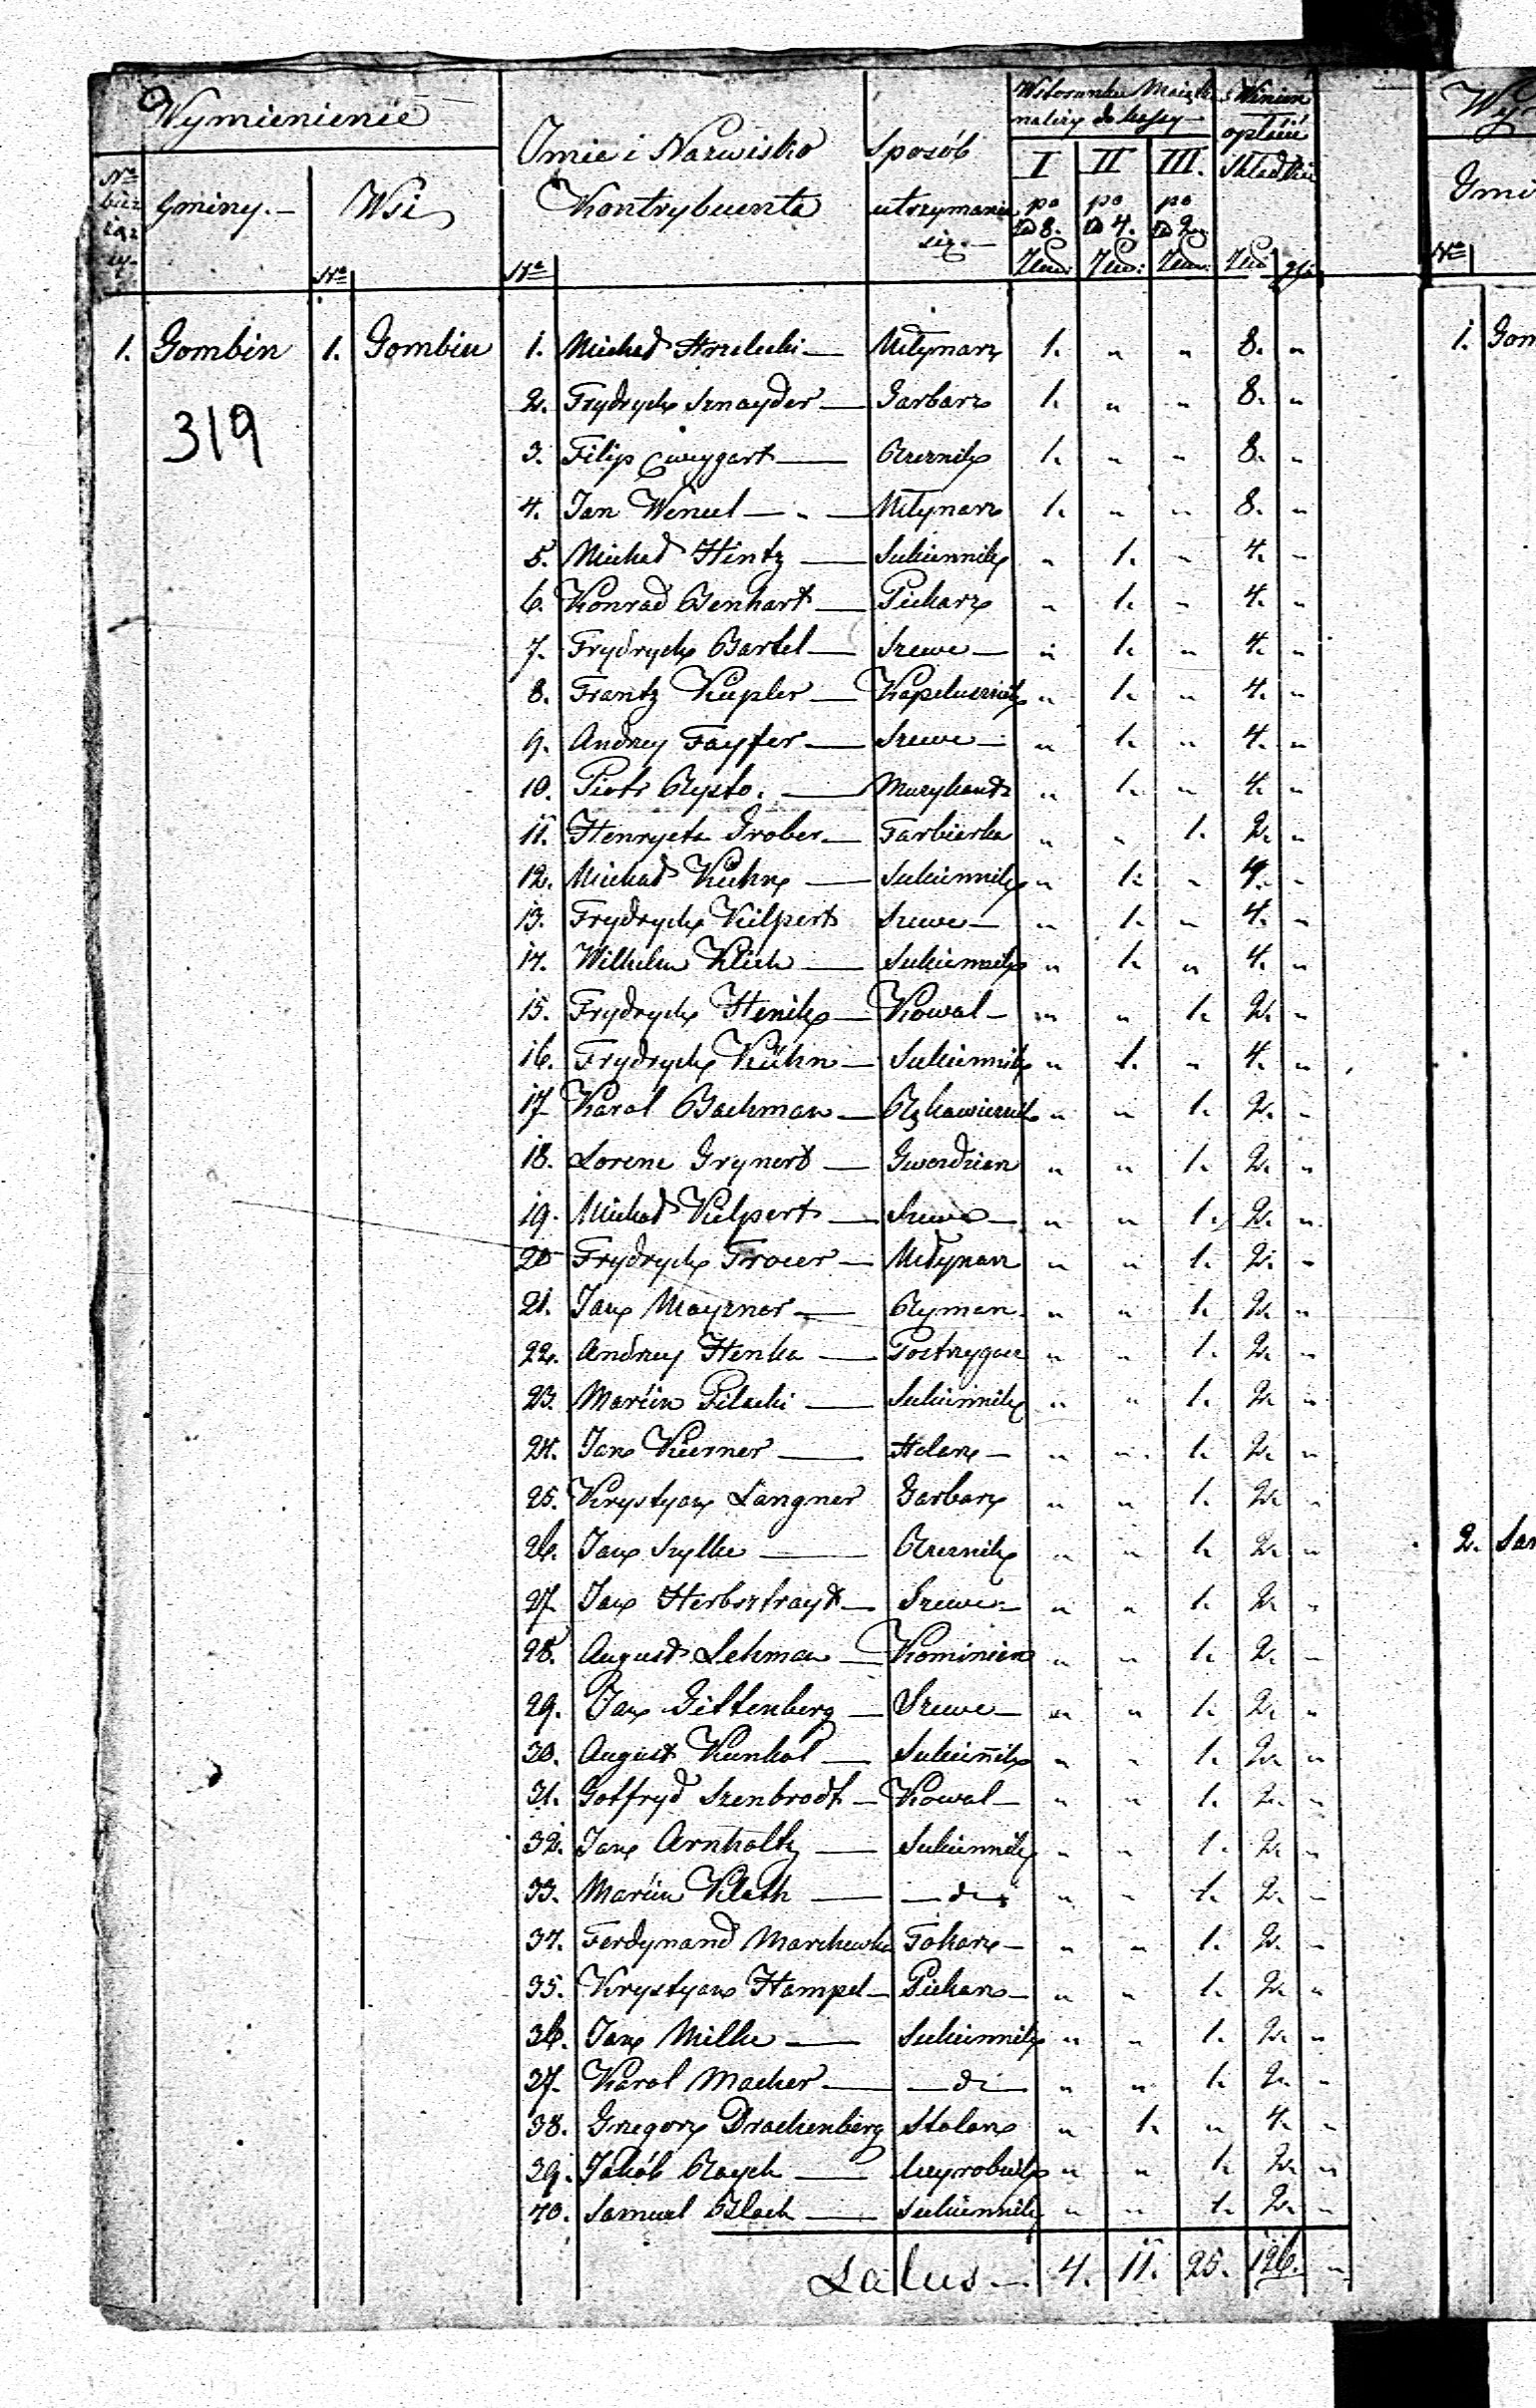 Wymienienie
Imie i Nazwisko Kontrybuenta
Sposób utrzymania się
W stosunku Maiątku należy do klassy
Winien opłacić składki
Nº bieżący
Gminy.
Wsi
Nº
Nº
I po 8.
II po 4.
III. po 2.
1. Gombin 1. Gombin 1. Michał Strzelecki Młynarz 1. " " 8. "
319
2. Frydrych Sznayder Garbarz 1. " " 8. "
3. Filip Cweygart Rzeznik 1. " " 8. "
4. Jan Wencel Młynarz 1. " " 8. "
5. Michał Hintz Sukiennik " 1. " 4. "
6. Konrad Benhart Piekarz " 1. " 4. "
7. Frydrych Bartel Szewc " 1. " 4. "
8. Frantz Kiepler Kapelusznik " 1. " 4. "
9. Andrzy Fayfer Szewc " 1. " 4. "
10. Piotr Muzykant " 1. " 4. "
11. Henryeta Grober Farbierka " " 1. 2. "
12. Michał Kühn Sukiennik " 1. " 4. "
13. Frydrych Kilpert Szewc " 1. " 4. "
14. Wilhelm Klich Sukiennik " 1. " 4. "
15. Frydrych Henik Kowal " " 1. 2. "
16. Frydrych Kühn Sukiennik " 1. " 4. "
17. Karol Bachman " " 1. 2. "
18. Lorenc Grynert Gwoździarz " " 1. 2. "
19. Michał Kilpert Szewc " " 1. 2. "
20. Frydrych Młynarz " " 1. 2. "
21. Jan Mayzner Rymarz " " 1. 2. "
22. Andrzy Henka Postrzygacz " " 1. 2. "
23. Marcin Pilacki Sukiennik " " 1. 2. "
24. Jan Kierner Stolarz " " 1. 2. "
25. Krystyan Langner Garbarz " " 1. 2. "
26. Jan Szylke Rzeznik " " 1. 2. "
27. Jan Herbsztrayt Szewc " " 1. 2. "
28. August Lehman Kominiarz " " 1. 2. "
29. Jan Gittenberg Szewc " " 1. 2. "
30. August Kunkel Sukiennik " " 1. 2. "
31. Gotfryd Szenbrodt Kowal " " 1. 2. "
32. Jan Arnholtz Sukiennik " " 1. 2. "
33. Marcin Klath — do " " 1. 2. "
34. Ferdynand Marchewka Tokarz " " 1. 2. "
35. Krystyan Hampel Piekarz " " 1. 2. "
36. Jan Milke Sukiennik " " 1. 2. "
37. Karol Macher — do " " 1. 2. "
38. Grzegorz Drachenberg Stolarz " 1. " 4. "
39. Jakób Raych Wyrobnik " " 1. 2. "
40. Samuel Block Sukiennik " " 1. 2. "
Latus 4. 11. 25. 126. "
Nº
1. Gom
2. San